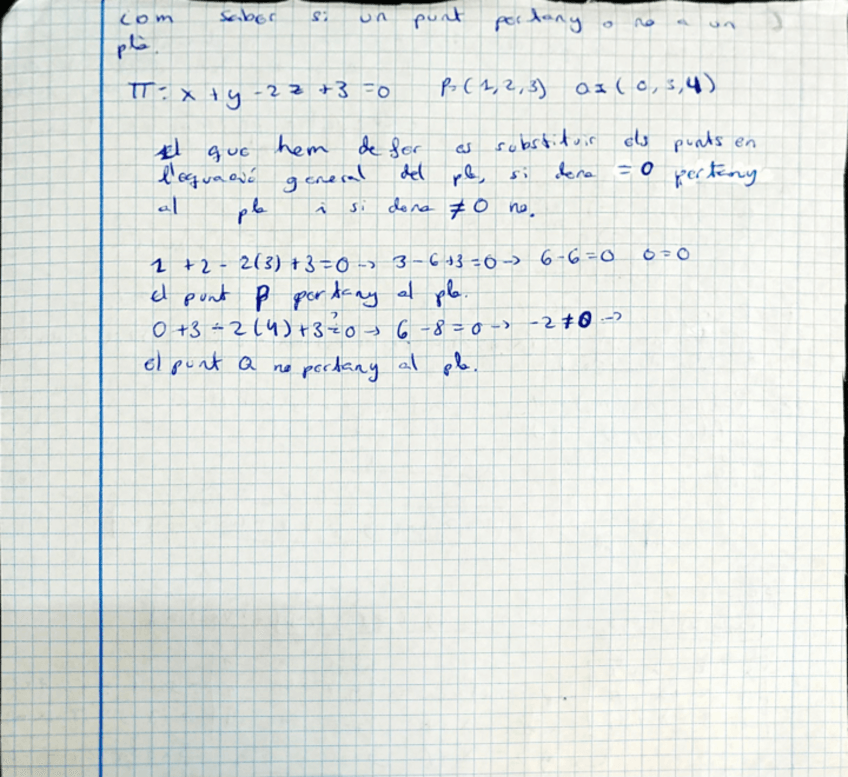 com saber si un punt pertany o no a un
pla.
π: x + y - 2z + 3 = 0 P=(1,2,3) Q=(0,3,4)
El que hem de fer es substituir els punts en
l'equació general del pla, si dona = 0 pertany
al pla i si dona ≠ 0 no.
1 + 2 - 2(3) + 3 = 0 -> 3 - 6 + 3 = 0 -> 6 - 6 = 0 0 = 0
el punt P pertany al pla.
0 + 3 - 2(4) + 3 ?= 0 -> 6 - 8 = 0 -> -2 ≠ 0 ->
el punt Q no pertany al pla.